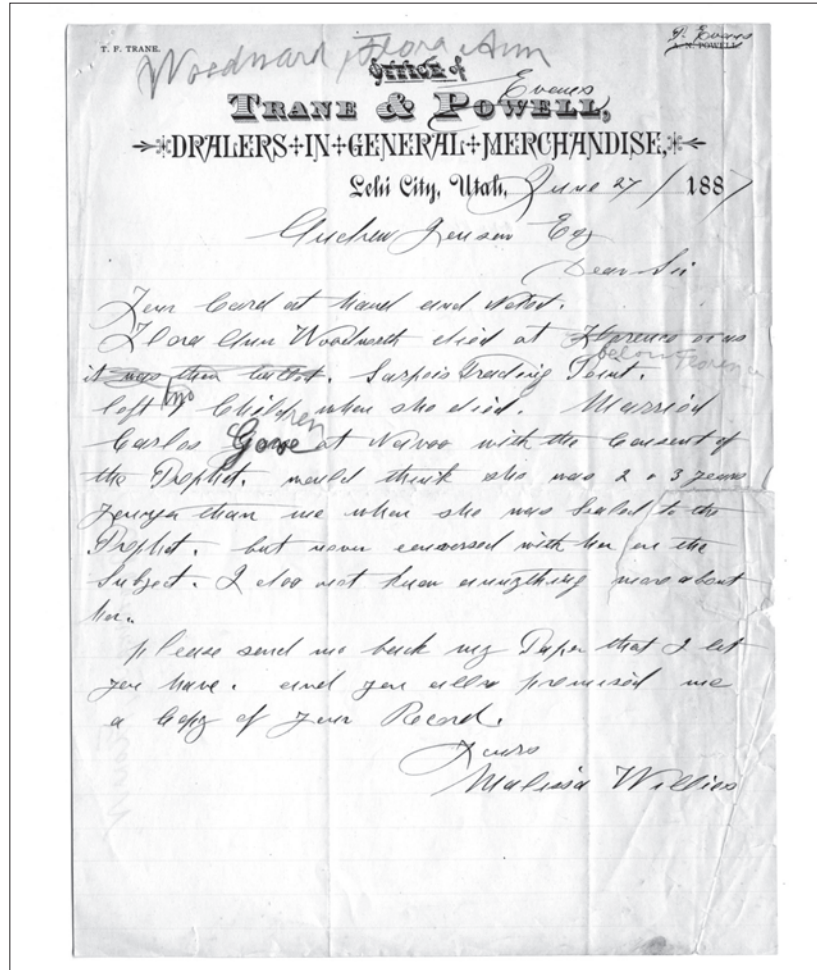 T. F. TRANE.
P. Evans
A. N. POWELL
Woodward, Flora Ann
OFFICE of
Evans
TRANE & POWELL,
DRALERS IN GENERAL MERCHANDISE,
Lehi City, Utah, June 27 / 1887
Andrew Jenson Esq
Dear Sir
Your Card at hand and Noted.
Flora Ann Woodworth died at Florence or as
below Florence
it was then called. Sarpeis Trading Point.
left two Children when she died. Married
Carlos Gove at Nauvoo with the Consent of
the Prophet. would think she was 2 or 3 years
younger than me when she was Sealed to the
Prophet. but never conversed with her on the
Subject. I doo not know anything more about
her.
please send me back my Paper that I let
you have. and you allso promised me
a Copy of your Record.
Yours
Malissa Willies